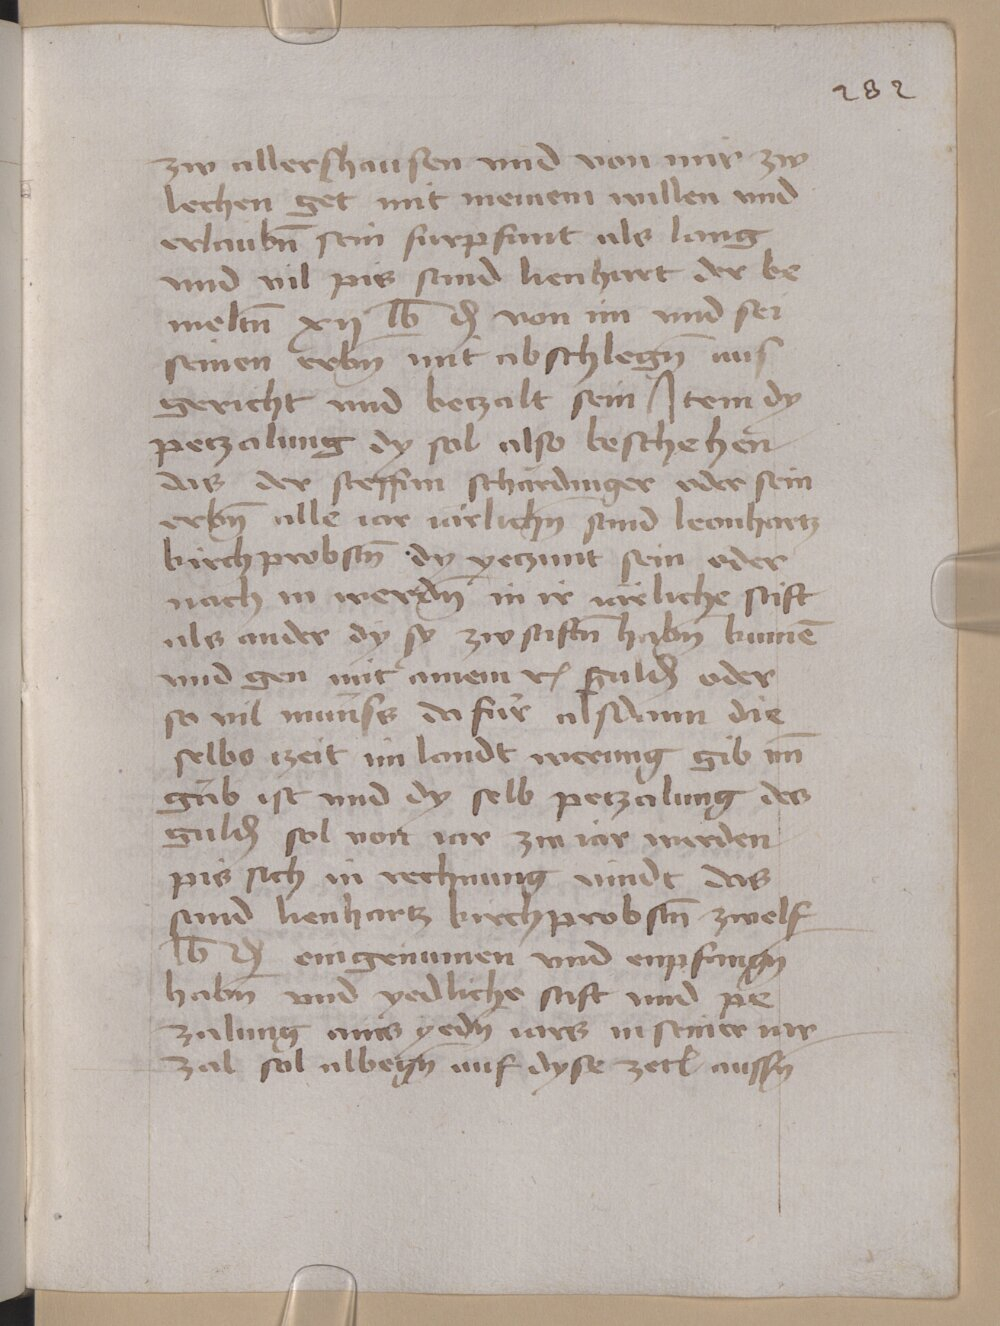 282
zw allershausen und von mir zw
lechen get mit meinem willen und
erlaubn̄ sein furpfant als lang
und vil pis sand lienhart der be
meltn̄ xij lb ₰ von im und sei
seinen erbn̄ mit abschlegn̄ aus
gericht und betzalt sein Item dy
petzalung dy sol also beschehen
das der steffan schardinger oder sein
erbn̄ alle iar iarlichn̄ sand leonhartz
kirchprobstn̄ dy yetzunt sein oder
nach in werdn̄ in ir iarliche stift
als ander dy sy zw stiftn̄ habn̄ kumē
und gen mit ainem guldn̄ oder
so vil munss da fur alsdann die
selbs zeit im landt werung gib un̄
gab ist und dy selb petzalung des
guldn̄ sol von iar zw iar werden
pis sich in rechnung vindt das
sand lienhartz kirchprobstn̄ zwelf
lb ₰ eingenumen und enpfangn̄
habn̄ und yedliche stift und pe
zalung ains yedn̄ iars in seiner iar
zal sol albegn̄ auf dyse zetl aussn̄